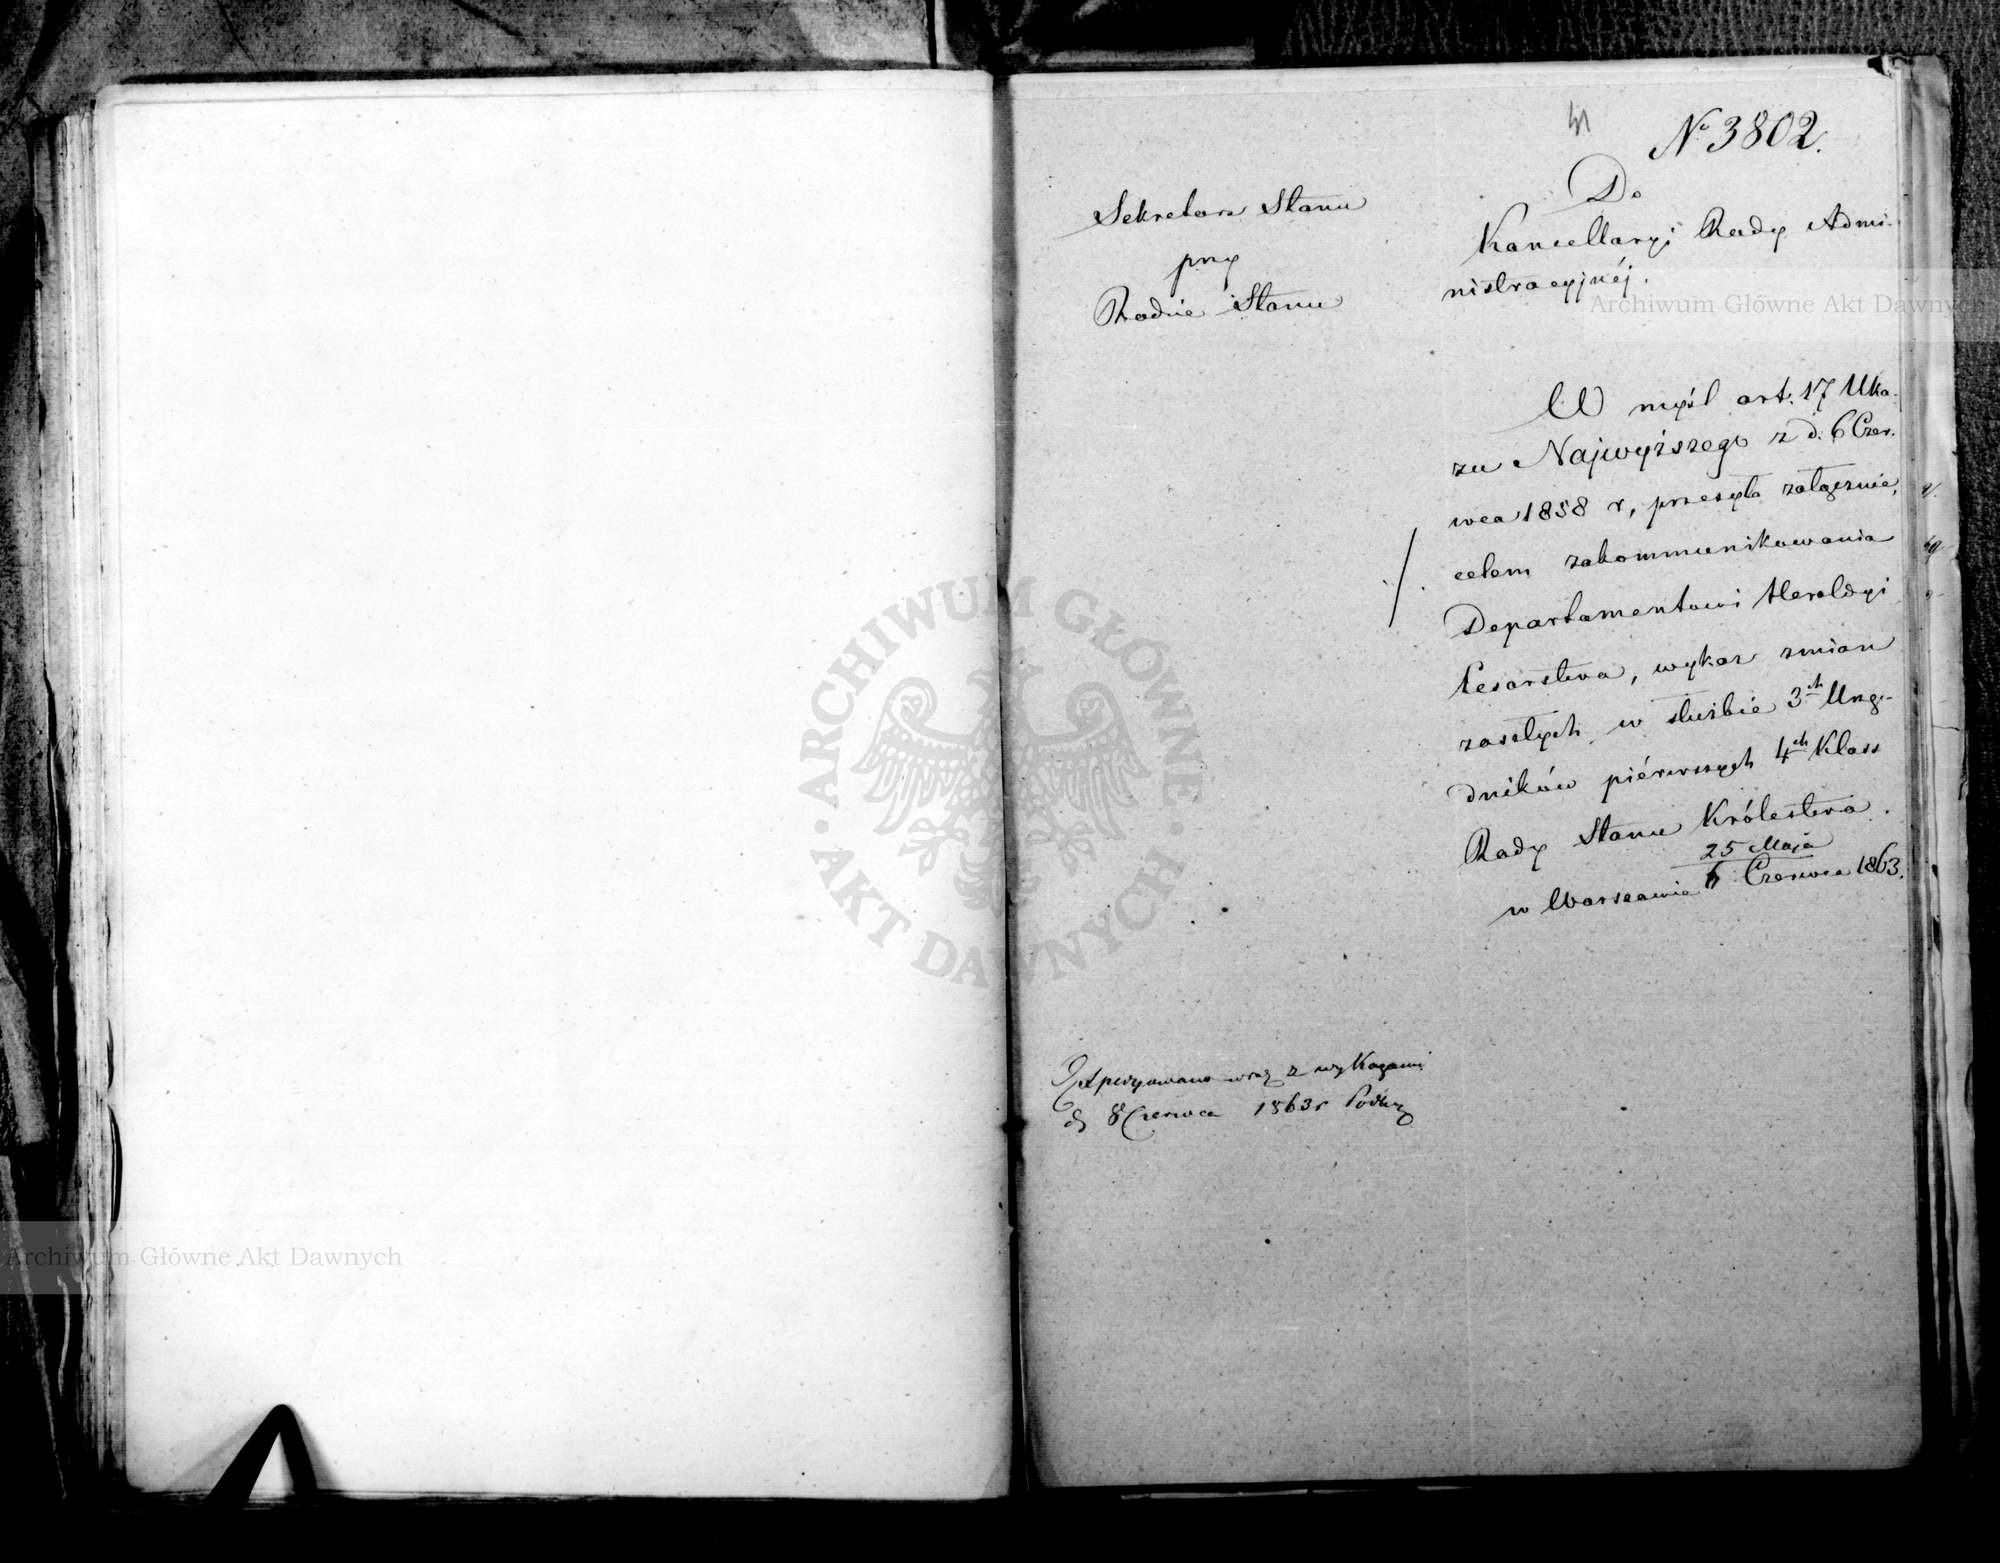 N° 3802.
Sekretarz Stanu
przy
Radzie Stanu
Do
Kancellaryi Rady Admi-
nistracyjnéj.
W myśl art. 17 Uka-
zu Najwyższego z d. 6 Czer-
wca 1858 r, przesyła załącznie,
celem zakommunikowania
Departamentowi Heroldyi
Cesarstwa, wykaz zmian
zaszłych w służbie 3ch Urzę-
dników piérwszych 4ch Klass
Rady Stanu Królestwa.
w Warszawie 25 Maja
6 Czerwca 1863.
Expedyowano wraz z wykazami
d. 8 Czerwca 1863 r
Archiwum Główne Akt Dawnych
ARCHIWUM GŁÓWNE · AKT DAWNYCH ·
Archiwum Główne Akt Dawnych